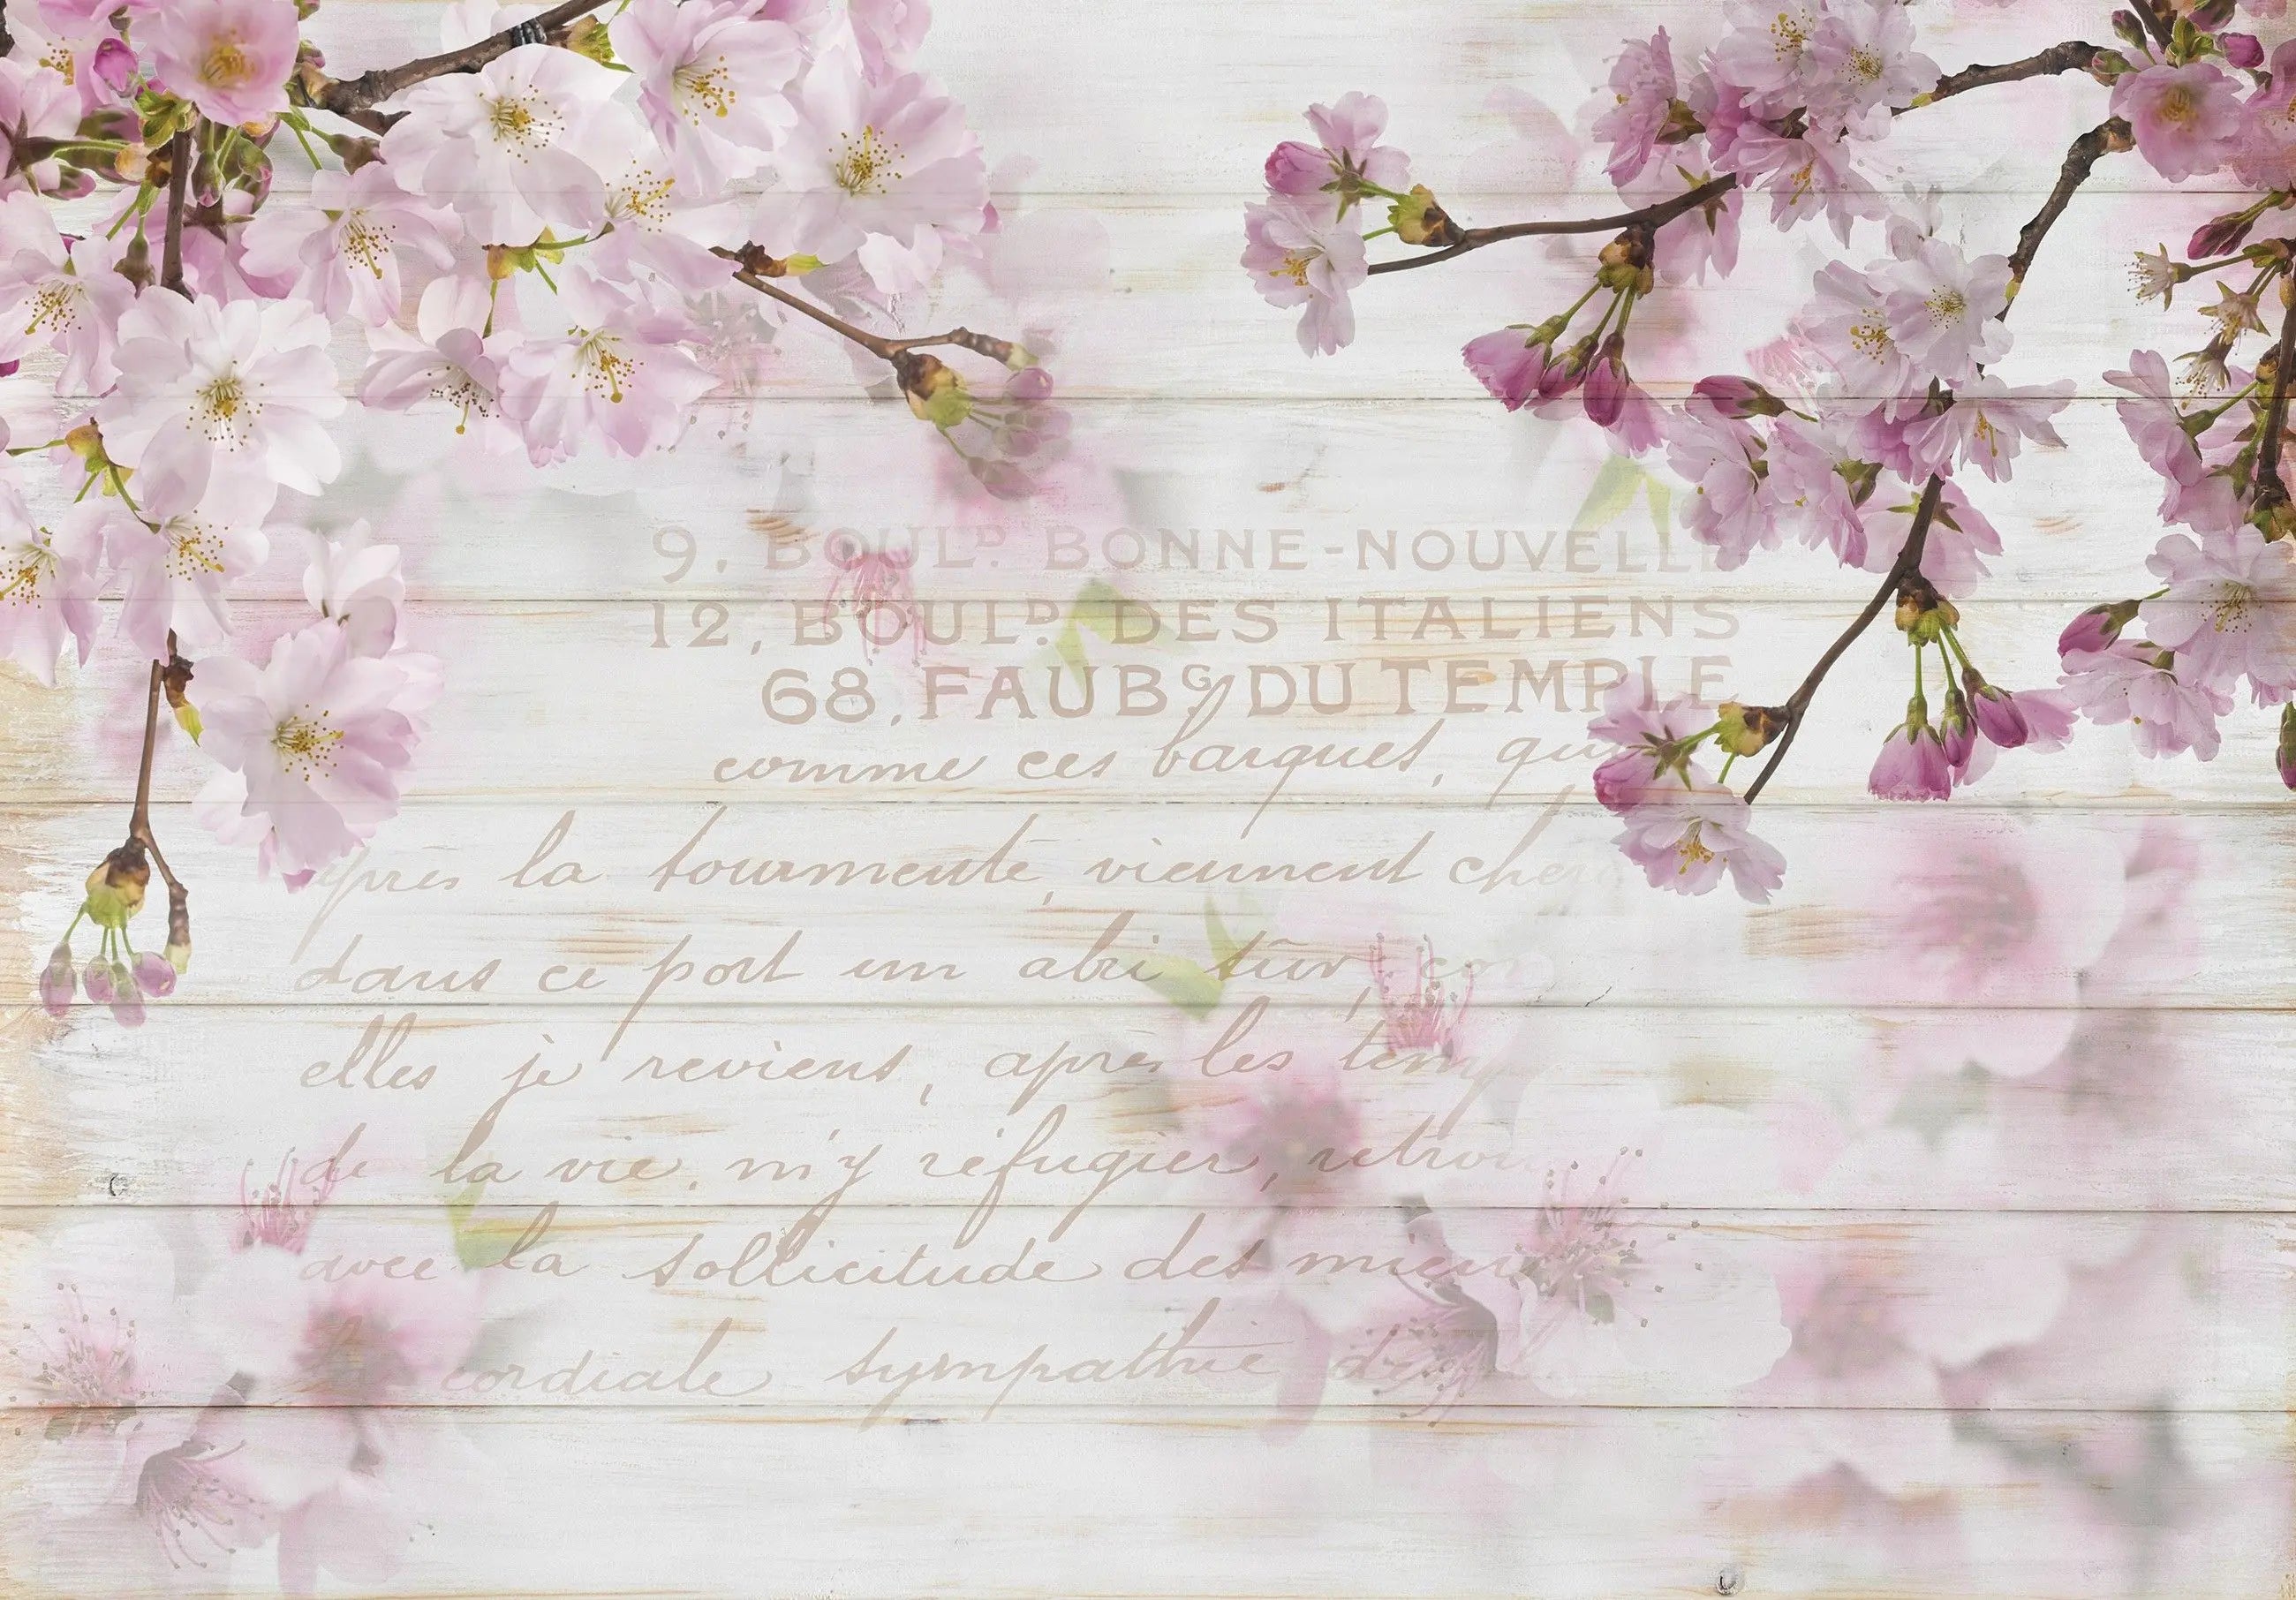 9. BOULD. BONNE-NOUVELLE
12, BOULD. DES ITALIENS
68. FAUBG. DU TEMPLE
comme ces barques, qui
après la tourmente, viennent cher
dans ce port un abri sûr, com
elles je reviens, après les temp
de la vie, m'y réfugier, retrou
avec la sollicitude des miens
la cordiale sympathie des